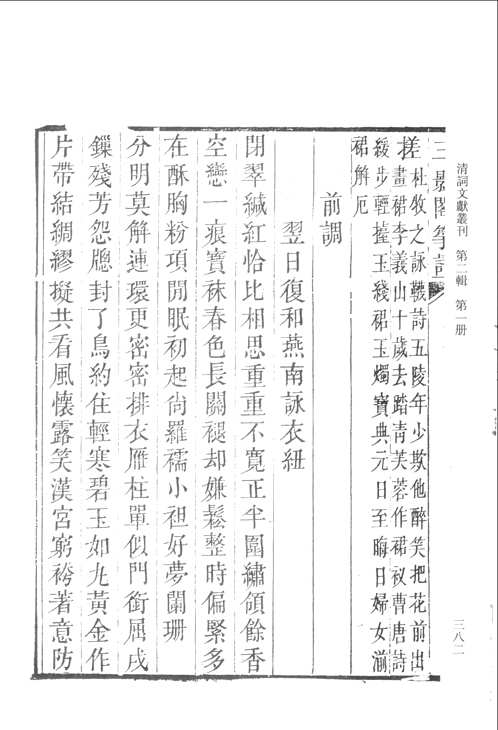 清詞文獻叢刊 第二輯 第一册
三八二
三影閣箏語
搓 杜牧之詠韈詩五陵年少欺他醉笑把花前出
畫裙李義山十歲去踏青芙蓉作裙衩曹唐詩
緩步輕擡玉綫裙玉燭寶典元日至晦日婦女湔
裙解厄
前調
翌日復和燕南詠衣紐
閉翠緘紅恰比相思重重不寬正半圍繡領餘香
空戀一痕寶袜春色長關褪却嫌鬆整時偏緊多
在酥胸粉項閒眠初起尙羅襦小袒好夢闌珊
分明莫解連環更密密排衣雁柱單似門銜屈戌
鏁殘芳怨牕封了鳥約住輕寒碧玉如丸黃金作
片帶結綢繆擬共看風懷露笑漢宮窮袴著意防